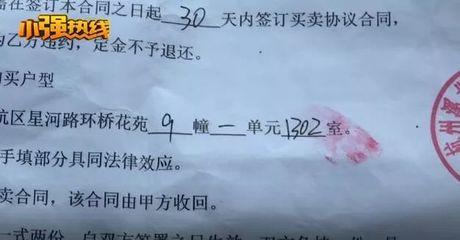 小强热线
需在签订本合同之日起30天内签订买卖协议合同,
为乙方违约,定金不予退还。
购买户型
杭区星河路环桥花苑9幢一单元1302室。
手填部分具同法律效应。
卖合同,该合同由甲方收回。
一式两份,自双方签署之日